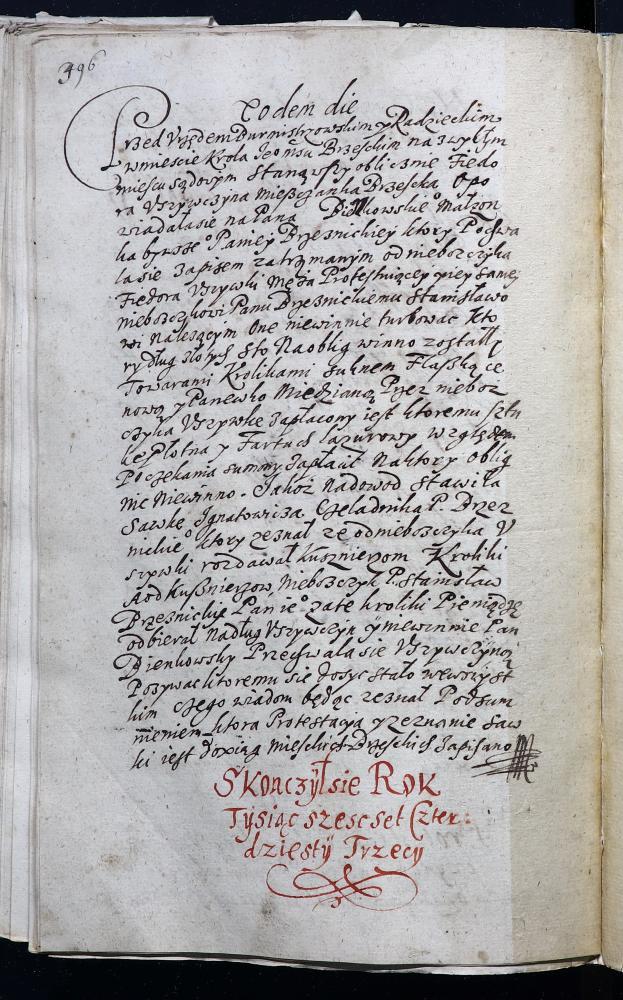 496
eodem die
Przed Vrzędem Burmistrzowskim y Radzieckim
w miescie Krola Jeo Msci Brzeskim na zwyłym
miescu sądowym Stanąwszy oblicznie Fiedo
ra Vszywczyna Mieszczanka Brzeska Opo
wiadała sie na Pana Małzon
ka bywsze° Paniey Brzesnickiey ktory Pochwa
la sie Zapisem zatrzymanym od nieboszczyka
Fiedora Vszywki Męża Protestuiącey y iey samey
nieboszczykowi Panu Brzesnickiemu Stanisławo
wi należącym One niewinnie turbowac kto
ry dług złotych Sto Na oblig winno został
Towarami Krolikami Suknem Flaszką ce
nową y Panewko Miedzianą Przez nieboz
czyka Vszywkę Zapłacony iest ktoremu sztu
kę Płotna y Fartuch lazurowy względem
Poczekania summy Zapłacił Na ktory oblig
nic Niewinno. Jakoż Na dowod Stawiła
Sawkę Ignatowicza Czeladnika P. Brzez
nickie° ktory zeznał ze od nieboszczyka V
szywki rozdawał Kusznierzom Kroliki
A od Kusznierzow, Nieboszczyk P. Stanisław
Brzesnicki Pan ie° za te kroliki Pieniądze
odbierał Na dług Vszywczyn y niewinnie Pan
Bienkowsky Przechwala sie Vszywczyną
Pozywac ktoremu sie dosyc stało we wszyst
kim czego wiadom będąc zeznał Pod sum
nieniem ktora Protestacya y zeznanie Saw
ki iest do xiąg mieskich Brzeskich Zapisano
Skonczył sie Rok
Tysiąc szescset Czter:
dziesty Trzecy